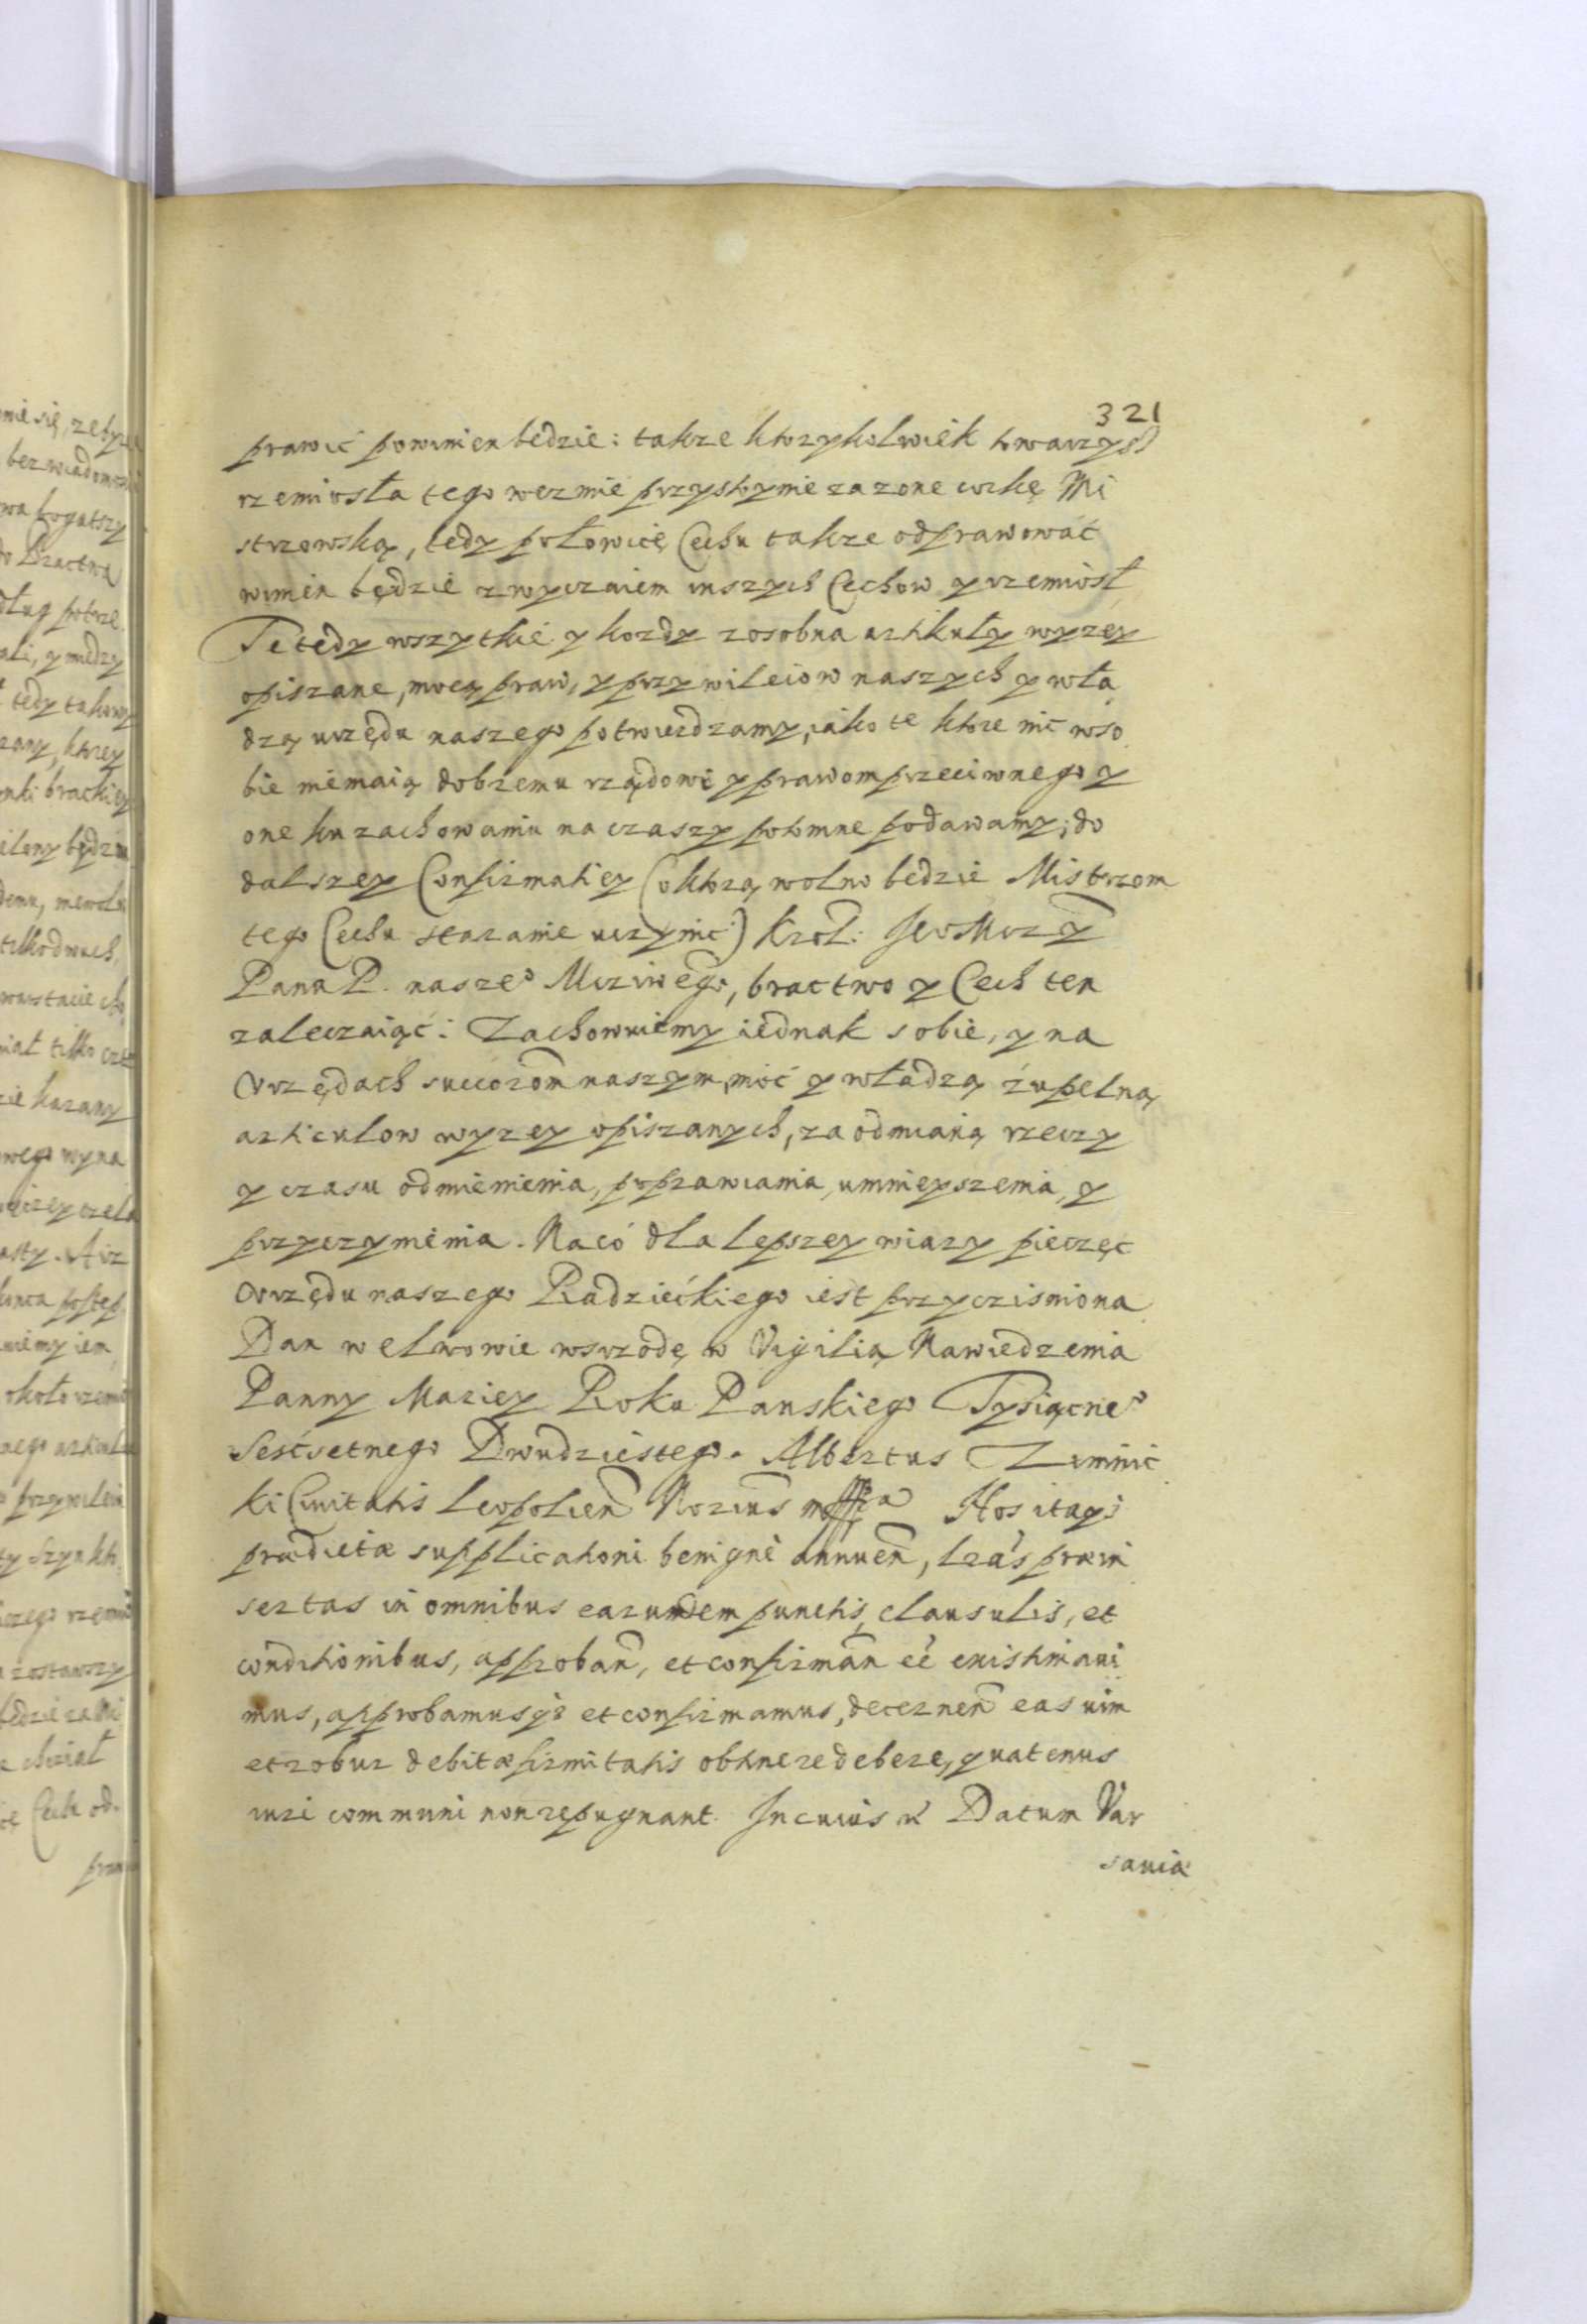 321
prawić powinien bedzie: takze ktorykolwiek towarzysz
rzemiosła tego wezmie przystoynie za zone corkę Mi
strzowską, tedy połowicę Cechu takze odprawować
winien będzie zwyczaiem inszych Cechow y rzemiosł
Te tedy wszytkie y kozdy zosobna artikuły wyzey
opiszane, mocą praw, y przywileiow naszych y wła
dzą urzędu naszego potwierdzamy, iako te ktore nic w so
bie niemaią dobremu rządowi y prawom przeciwnego y
one ku zachowaniu na czaszy potomne podawamy; do
dalszey Confirmatiey (o ktorą wolno bedzie Mistrzom
tego Cechu staranie uczynic) Krol: Jeo Mczy
Pana P. naszeo Mciwego, bractwo y Cech ten
zalecaiąć: Zachowuiemy iednak sobie, y na
Urzędach succorom naszym, moć y władzą zupelną
articulow wyzey opiszanych, za odmianą rzeczy
y czasu odmienienia, poprawiania, umnieyszenia, y
przyczynienia. Na co dla lepszey wiary pieczęc
Urzędu naszego Radziećkiego iest przycziśniona
Dan we Lwowie w srzodę w Vigilią Nawiedzenia
Panny Mariey Roku Panskiego Tysiącneo
Sesćsetnego Dwudziestego. Albertus Zimnic
ki Civitatis Leopolien Norius mppa Nos itaq;
prædictæ supplicationi benigne annuen, lras præin
sertas in omnibus earundem punctis, clausulis, et
conditionibus, approban, et confirman eē existimavi
mus, approbamusq; et confirmamus, decernen eas vim
et robur debitæ firmitatis obtinere debere, quatenus
iuri communi non repugnant. In cuius r̃ Datum Var
saviæ